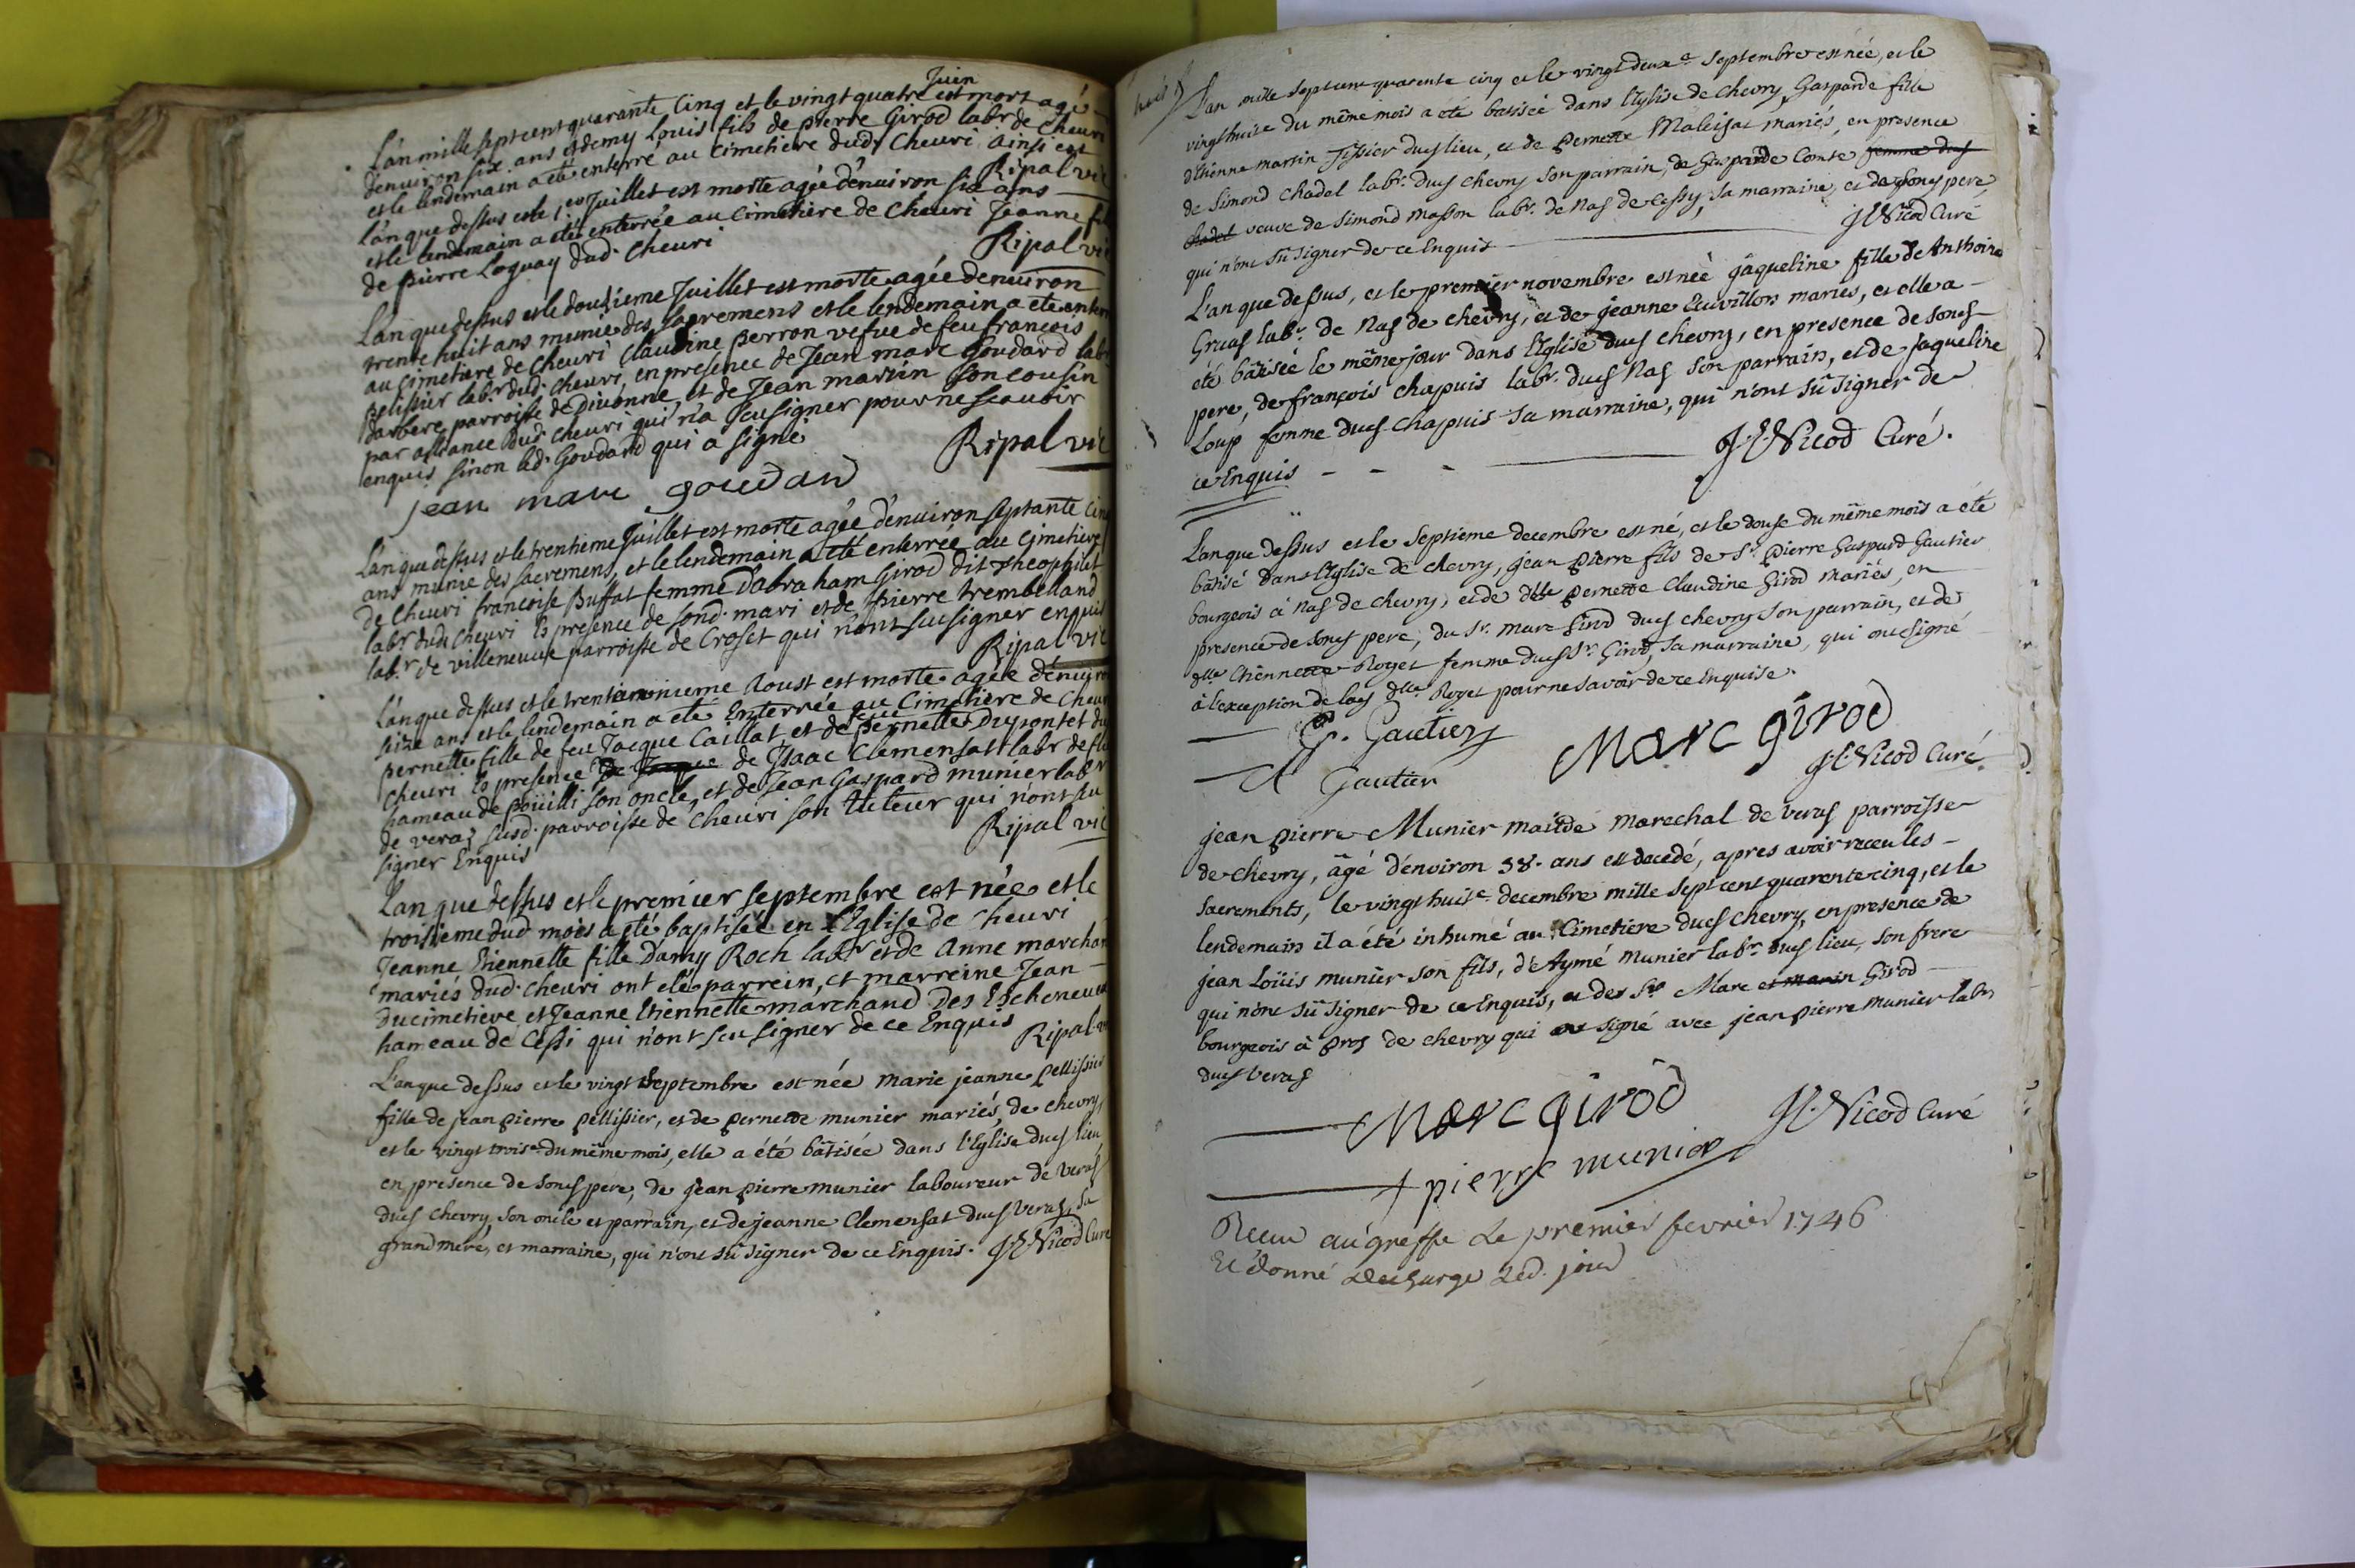 Juin
L'an mille sept cent quarante Cinq et le vingt quatre est mort agé
d'enuiron six ans et demy Louis fils de pierre Girod labr de Cheuri
et le lendemain a eté enterré au Cimetiere dud. Cheuri ainsi est
Ripal vic
L'an que dessus et le 1er Juillet est morte agée d'enuiron six ans
et le lendemain a eté enterrée au Cimetiere de Cheuri Jeanne
de pierre Loguay dud. Cheuri
Ripal vic
L'an que dessus et le douzieme Juillet est morte agée denuiron
trente huit ans munie des sacremens et le lendemain a eté
au Cimetiere de Cheuri Claudine perron vefue de feu francois
pelissier labr. dud. Cheuri, en presence de Jean marc Goudard
parroisse de Diuonne, et de Jean martin son cousin
par alliance dud. Cheuri qui n'a sceu signer pour ne scauoir
enquis sinon led. Goudard qui a signé
Ripal vic
jean marc goudard
L'an que dessus et le trentieme Juillet est morte agée d'enuiron septante
ans munie des sacremens, et le lendemain a eté enterrée au Cimetiere
de Cheuri francoise Buffat femme D'abraham Girod dit Theophile
labr. dud. Cheuri En presence de sond. mari et de pierre trembelland
labr. de villeneuue parroisse de Croset qui n'ont sceu signer enquis
Ripal vic
L'an que dessus et le Aoust est morte agée d'enuiron
seize ans et le lendemain a eté Enterrée au Cimetiere de Cheuri
feue
pernette fille de feu Jacque Caillat et de pernette Dupontet
Cheuri En presence de Isaac Clemensat labr
hameau de poüilli son oncle, et de Jean Gaspard munier labr
de veraz susd. parroisse de Cheuri son tuteur qui n'ont sceu
signer Enquis
Ripal vic
L'an que dessus et le premier septembre est née et le
troisieme dud mois a eté baptisée en l'Eglise de Cheuri
Jeanne Etiennette fille D'amy Roch labr et de Anne marchand
mariés dud. Cheuri ont eté parrein, et marreine Jean
Ducimetiere et Jeanne Etiennette marchand Des Echeneuex
hameau de Cessi qui n'ont sceu signer de ce Enquis
Ripal vic
L'an que dessus et le vingt septembre est née marie jeanne pellissier
fille de jean pierre pellissier, et de pernette munier mariés, de chevry,
et le vingt troise du même mois, elle a été bâtisée dans l'Eglise dud lieu
en presence de sond pere, de jean pierre munier laboureur de veras
dud chevry son oncle et parrain, et de jeanne Clemensat dud Veras, sa
grand mere, et marraine, qui n'ont sû signer de ce Enquis. JL Nicod Curé
L'an mille sept cent quarante cinq et le vingt deuxe septembre est née, et le
vingt huite du même mois a été batisée dans l'Eglise de chevry Gasparde fille
d'Etienne martin Tissier dud lieu, et de pernette Maleisat mariés, en presence
de Simond Chadel labr. dud chevry son parrain, de Gasparde Comte femme dud
Chadel veuve de Simond Masson labr. de Nas de Cessy, sa marraine, et de sond pere,
qui n'ont sû signer de ce Enquis
JL Nicod Curé
L'an que dessus, et le premier novembre est née jâqueline fille de Anthoine
Gruas labr. de Nas de chevry, et de jeanne Ecuvillon mariés, et elle a
été bâtisée le même jour dans l'Eglise dud chevry, en presence de sond
pere, de françois chapuis labr. dud Nas son parrain, et de jaqueline
Loup femme dud chapuis sa marraine, qui n'ont sû signer de
ce Enquis
JL Nicod Curé.
L'an que dessus et le septieme decembre est né, et le douse du même mois a été
batisé dans l'Eglise de chevry, jean pierre fils de Sr. pierre Gaspard Gautier
bourgeois à Nas de chevry, et de dlle pernette Claudine Girod mariés, en
presence de sond pere, du Sr. marc Girod dud chevry son parrain, et de
dlle Etiennette Royet femme dud Sr. Girod, sa marraine, qui ont signé
à l'exception de lad dlle Royet pour ne savoir de ce Enquise.
P. Gautier
Marc girod
A Gautier
JL Nicod Curé.
jean pierre Munier maitre marechal de veras parroisse
de chevry, âgé d'environ 58. ans est decedé, apres avoir receu les
sacrements, le vingt huite decembre mille sept cent quarente cinq, et le
lendemain il a été inhumé au Cimetiere dud chevry, en presence de
jean Loüis munier son fils, d'Aymé munier labr. dud lieu, son frere
qui n'ont sû signer de ce Enquis, et des Srs Marc et marin Girod
bourgeois à pros de chevry qui ont signé avec jean pierre munier labr
dud veras
Marc girod
JL Nicod Curé
J pierre munier
Receu au greffe Le premier fevrier 1746
Et donné decharge Led. jour